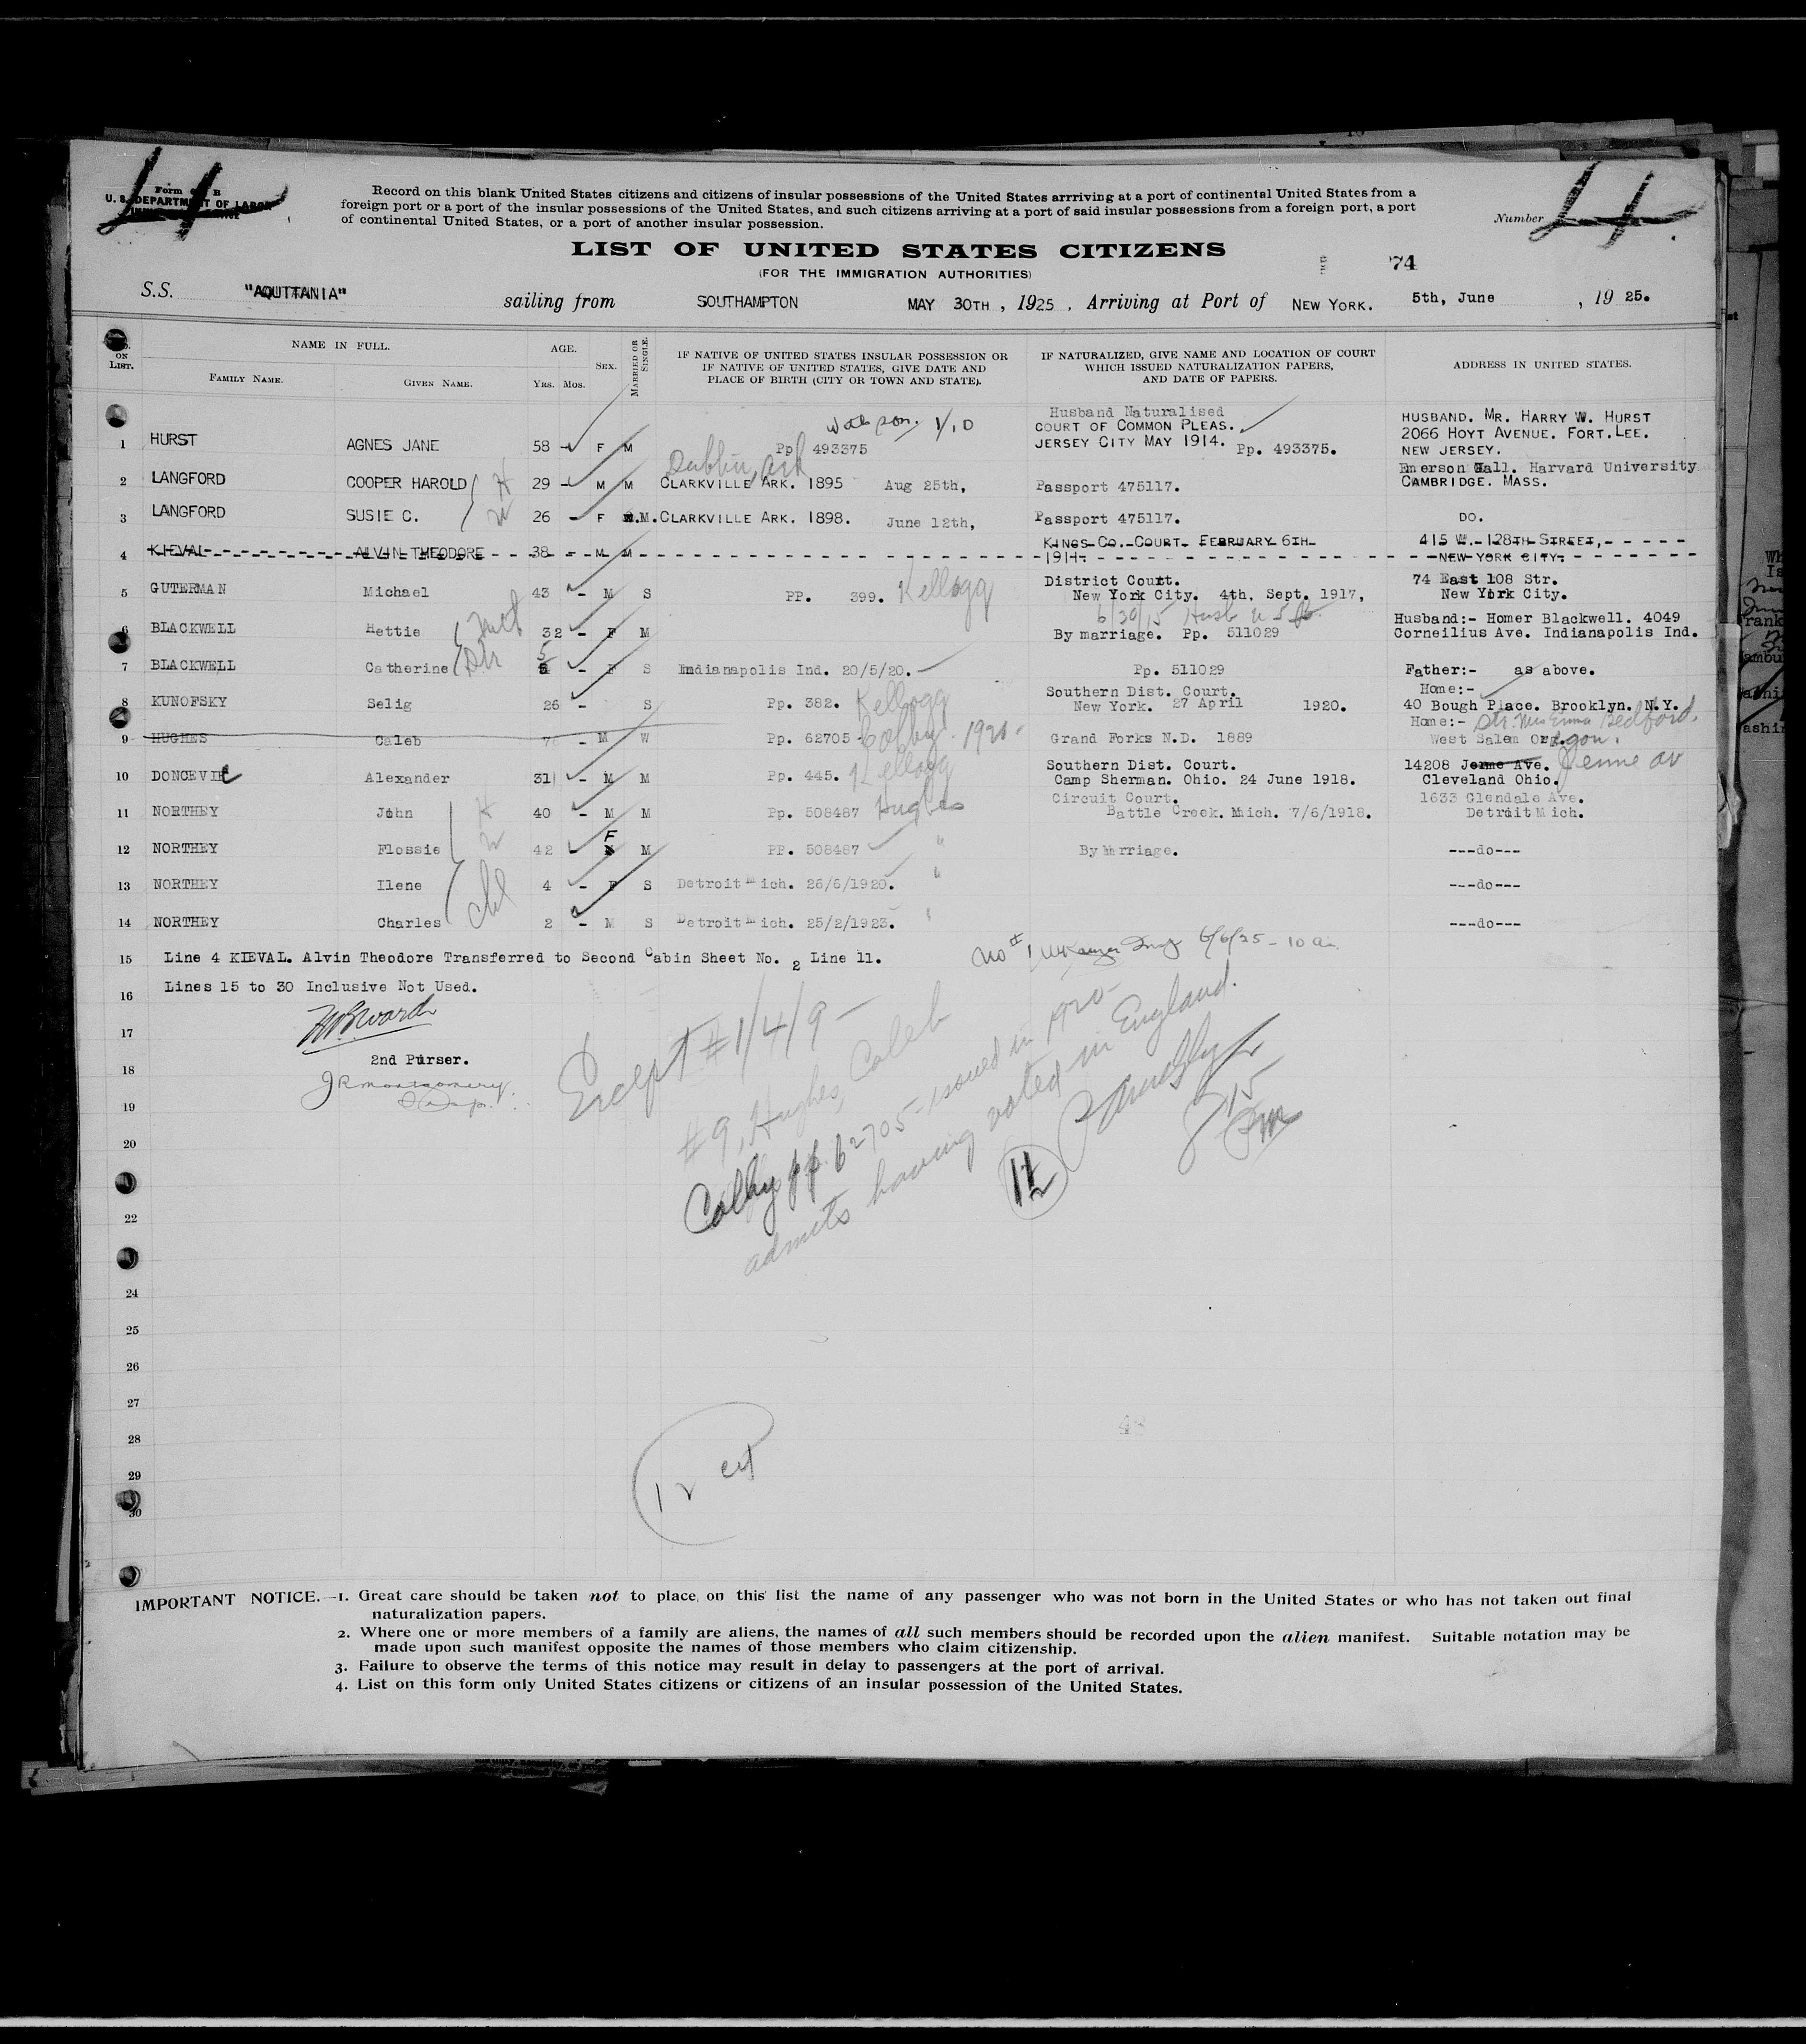 Form B
U. S. DEPARTMENT OF LABOR
Record on this blank United States citizens and citizens of insular possessions of the United States arrriving at a port of continental United States from a
foreign port or a port of the insular possessions of the United States, and such citizens arriving at a port of said insular possessions from a foreign port, a port
of continental United States, or a port of another insular possession.
Number 4
LIST OF UNITED STATES CITIZENS
(FOR THE IMMIGRATION AUTHORITIES)
74
S.S. "AQUTTANIA" sailing from SOUTHAMPTON MAY 30TH, 1925, Arriving at Port of NEW YORK. 5th, June, 1925.
ON LIST. NAME IN FULL. FAMILY NAME. GIVEN NAME. AGE. YRS. MOS. SEX. MARRIED OR SINGLE. IF NATIVE OF UNITED STATES INSULAR POSSESSION OR IF NATIVE OF UNITED STATES, GIVE DATE AND PLACE OF BIRTH (CITY OR TOWN AND STATE). IF NATURALIZED, GIVE NAME AND LOCATION OF COURT WHICH ISSUED NATURALIZATION PAPERS, AND DATE OF PAPERS. ADDRESS IN UNITED STATES.
1 HURST AGNES JANE 58 F M Pp 493375 1/10 Husband Naturalised COURT OF COMMON PLEAS. JERSEY CITY MAY 1914. Pp. 493375. HUSBAND. MR. HARRY W. HURST 2066 HOYT AVENUE. FORT.LEE. NEW JERSEY.
2 LANGFORD COOPER HAROLD H 29 - M M Dublin, Ark CLARKVILLE ARK. 1895 Aug 25th, Passport 475117. Emerson Hall. Harvard University CAMBRIDGE. MASS.
3 LANGFORD SUSIE C. W 26 - F M. CLARKVILLE ARK. 1898. June 12th, Passport 475117. DO.
4 KIEVAL ALVIN THEODORE 38 - M M KINGS CO. COURT. FEBRUARY 6TH 1914. 415 W. 128TH STREET, NEW YORK CITY.
5 GUTERMAN Michael 43 - M S PP. 399. Kellogg District Court. New York City. 4th, Sept. 1917, 74 East 108 Str. New York City.
6 BLACKWELL Hettie 32 - F M 6/30/15 By marriage. Pp. 511029 Husband:- Homer Blackwell. 4049 Corneilius Ave. Indianapolis Ind.
7 BLACKWELL Catherine Dtr 5 - F S Indianapolis Ind. 20/5/20. Pp. 511029 Father:- as above.
8 KUNOFSKY Selig 26 - S Pp. 382. Kellogg Southern Dist. Court. New York. 27 April 1920. Home:- 40 Bough Place. Brooklyn. N.Y.
9 HUGHES Caleb - M W Pp. 62705 Colby. Grand Forks N.D. 1889 Home:- Dtr Mrs Emma Bedford, West Salem Oregon.
10 DONCEVIC Alexander 31 - M M Pp. 445. Kellogg Southern Dist. Court. Camp Sherman. Ohio. 24 June 1918. 14208 Jerme Ave. Jenne av Cleveland Ohio.
11 NORTHEY John H 40 - M M Pp. 508487 Hughes Circuit Court. Battle Creek. Mich. 7/6/1918. 1633 Glendale Ave. Detroit Mich.
12 NORTHEY Flossie W 42 - F M PP. 508487 " By Marriage. ---do---
13 NORTHEY Ilene 4 - F S Detroit Mich. 26/6/1920. " ---do---
14 NORTHEY Charles chl 2 - M S Detroit Mich. 25/2/1923. " ---do---
15 Line 4 KIEVAL. Alvin Theodore Transferred to Second Cabin Sheet No. 2 Line 11.
No #1 6/6/25 - 10 a.
16 Lines 15 to 30 Inclusive Not Used.
17
2nd Purser.
18
J R Montgomery
19
20
22
24
25
26
27
28
29
30
Except #1/4/9 -
#9, Hughes, Caleb
Colby pp. 62705 - issued in 1920
admits having voted in England.
12
48
IMPORTANT NOTICE.—1. Great care should be taken not to place on this list the name of any passenger who was not born in the United States or who has not taken out final
naturalization papers.
2. Where one or more members of a family are aliens, the names of all such members should be recorded upon the alien manifest. Suitable notation may be
made upon such manifest opposite the names of those members who claim citizenship.
3. Failure to observe the terms of this notice may result in delay to passengers at the port of arrival.
4. List on this form only United States citizens or citizens of an insular possession of the United States.